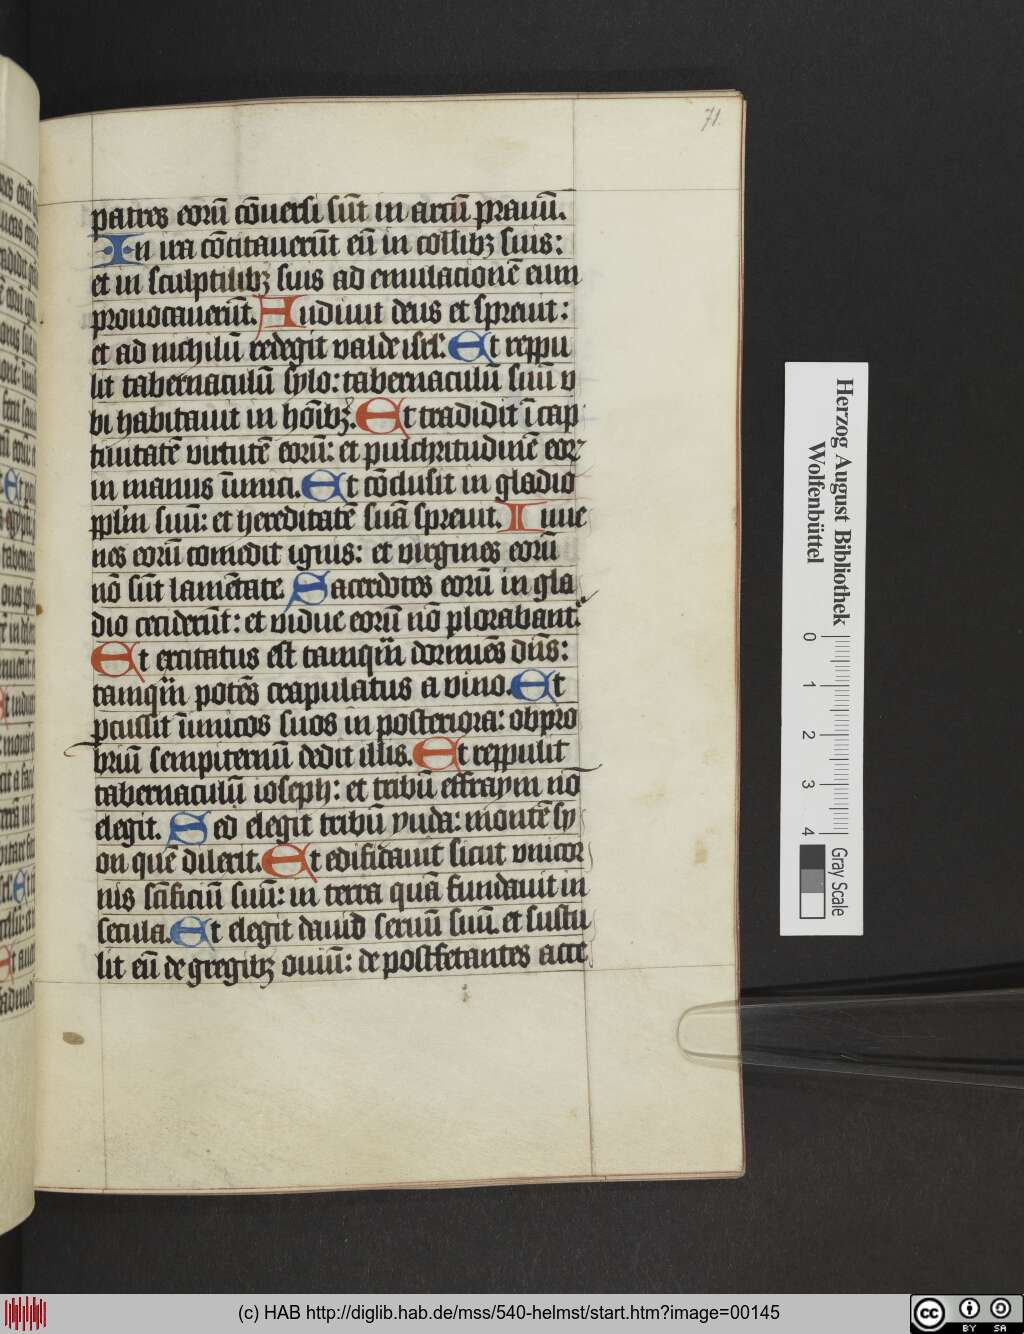 71.
patres eorū cōuersi sūt in arcū prauū.
In ira cōcitauerūt eū in collibꝫ suis:
et in sculptilibꝫ suis ad emulacionē eum
prouocauerūt. Audiuit deus et spreuit:
et ad nichilū redegit valde isrl'. Et reppu
lit tabernaculū sylo: tabernaculū suū v
bi habitauit in hoīibꝫ. Et tradidit ī cap
tiuitatē virtutē eorū: et pulchritudinē eoꝝ
in manus īimici. Et cōclusit in gladio
pplm suū: et hereditatē suā spreuit. Iuue
nes eorū comedit ignis: et virgines eorū
nō sūt lamētate. Sacerdotes eorū in gla
dio ceciderūt: et vidue eorū nō plorabant'.
Et excitatus est tamqm̄ dormiēs dn̄s:
tamqm̄ potēs crapulatus a vino. Et
pcussit īimicos suos in posteriora: obpro
briū sempiternū dedit illis. Et reppulit
tabernaculū ioseph: et tribū effraym nō
elegit. Sed elegit tribū yuda: montē sy
on quē dilexit. Et edificauit sicut vnicor
nis sc̄ificiū suū: in terra quā fundauit in
secula. Et elegit dauid seruū suū. et sustu
lit eū de gregibꝫ ouiū: de postfetantes acce
Herzog August Bibliothek
Wolfenbüttel
0 1 2 3 4
Gray Scale
(c) HAB http://diglib.hab.de/mss/540-helmst/start.htm?image=00145
cc BY SA